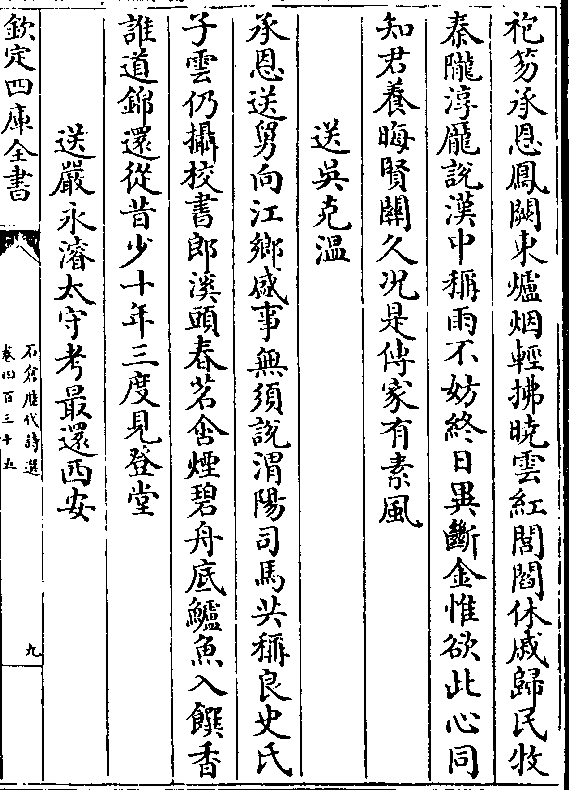 袍笏承恩鳳闕東爐烟輕拂曉雲紅閭閻休戚歸民牧
秦隴淳龎説漢中稱雨不妨終日異斷金惟欲此心同
知君養晦賢關久况是傳家有素風
送吳克温
承恩送舅向江鄉感事無須說渭陽司馬共稱良史氏
子雲仍攝校書郎溪頭春茗含煙碧舟底鱸魚入饌香
誰道錦還從昔少十年三度見登堂
送嚴永濬太守考最還西安
欽定四庫全書
石倉歴代詩選
卷四百三十五
九